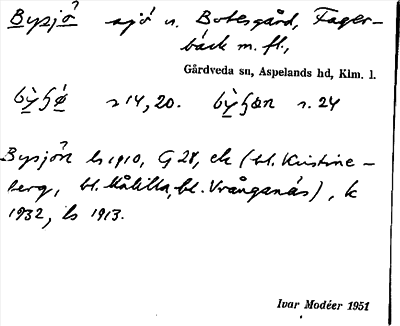 Bysjö sjö n. Botesgård, Fager-
bäck m. fl.,
Gårdveda sn, Aspelands hd, Klm. l.
s 14, 20. s. 24
Bysjön ls 1910, G 28, ek (bl. Kristine-
berg, bl. Målilla, bl. Vrånganäs), k
1932, ls 1913.
Ivar Modéer 1951